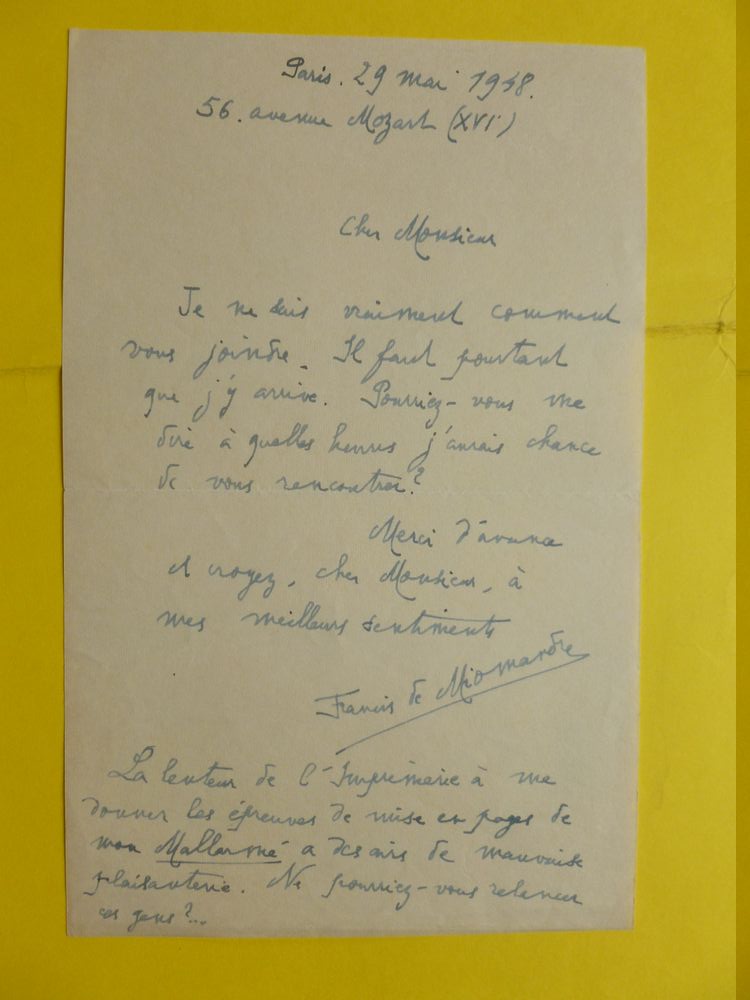 Paris. 29 mai 1948.
56. avenue Mozart (XVI)
Cher Monsieur
Je ne sais vraiment comment
vous joindre. Il faut pourtant
que j'y arrive. Pourriez-vous me
dire à quelles heures j'aurais chance
de vous rencontrer?
Merci d'avance
et croyez, cher Monsieur, à
mes meilleurs sentiments
Francis de Miomandre
La lenteur de l'Imprimerie à me
donner les épreuves de mise en pages de
mon Mallarmé a des airs de mauvaise
plaisanterie. Ne pourriez-vous relancer
ces gens?...